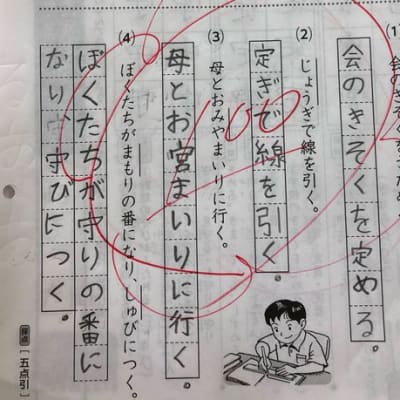 会のきそくを定める。
(2) じょうぎで線を引く。
定ぎで線を引く。
(3) 母とおみやまいりに行く。
母とお宮まいりに行く。
(4) ぼくたちがまもりの番になり、しゅびにつく。
ぼくたちが守りの番に
なり、守びにつく。
100
採点［五点引］